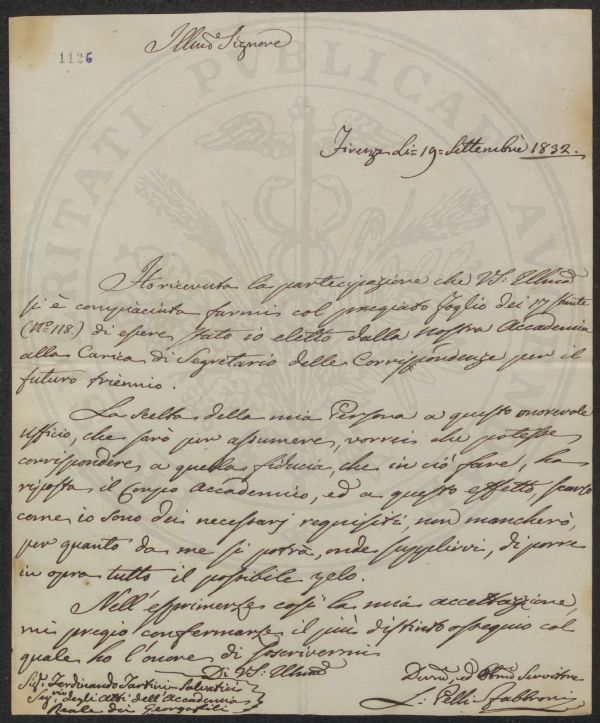 1126
Illmo Signore
Firenze li = 19 = Settembre 1832.
Ho ricevuta la partecipazione che VS: Illma
si è compiaciuta farmi col pregiato foglio dei 17 stante
(N.° 118.) di essere stato io eletto dalla nostra Accademia
alla Carica di Segretario delle Corrispondenze per il
futuro triennio.
La scelta della mia Persona a questo onorevole
uffizio, che sarò per assumere, vorrei che potesse
corrispondere a quella fiducia, che in ciò fare, ha
riposta il Corpo Accademico, ed a questo effetto, scarso
come io sono dei necessarj requisiti, non mancherò,
per quanto da me si potrà, onde supplirvi, di porre
in opra tutto il possibile zelo.
Nell'esprimerze così la mia accettazione,
mi pregio confermarze il più distinto ossequio col
quale ho l'onore di soscrivermi
Di VS: Illma
Sigr. Ferdinando Tartini-Salvatici
Segrio degli Atti dell'Accademia
Reale dei Georgofili
Devmo, ed Obbmo Servitore
L: Pelli-Fabbroni
PVBLICAE